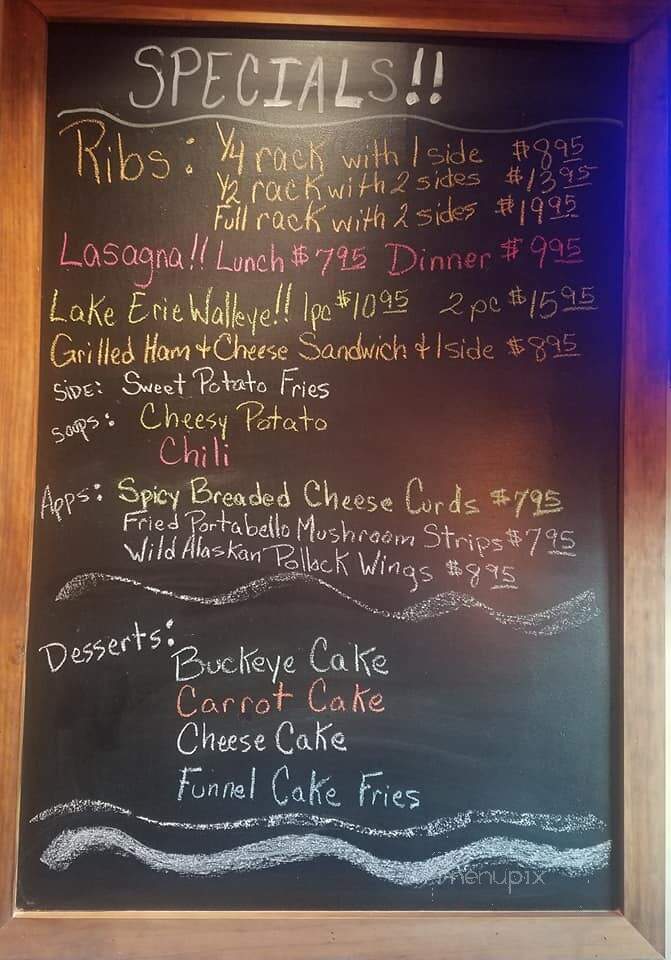 SPECIALS!!
Ribs: 1/4 rack with 1 side $8.95
1/2 rack with 2 sides $13.95
Full rack with 2 sides $19.95
Lasagna!! Lunch $7.95 Dinner $9.95
Lake Erie Walleye!! 1pc $10.95 2pc $15.95
Grilled Ham + Cheese Sandwich + 1 side $8.95
SIDE: Sweet Potato Fries
Soups: Cheesy Potato
Chili
Apps: Spicy Breaded Cheese Curds $7.95
Fried Portabello Mushroom Strips $7.95
Wild Alaskan Pollock Wings $8.95
Desserts:
Buckeye Cake
Carrot Cake
Cheese Cake
Funnel Cake Fries
menupix